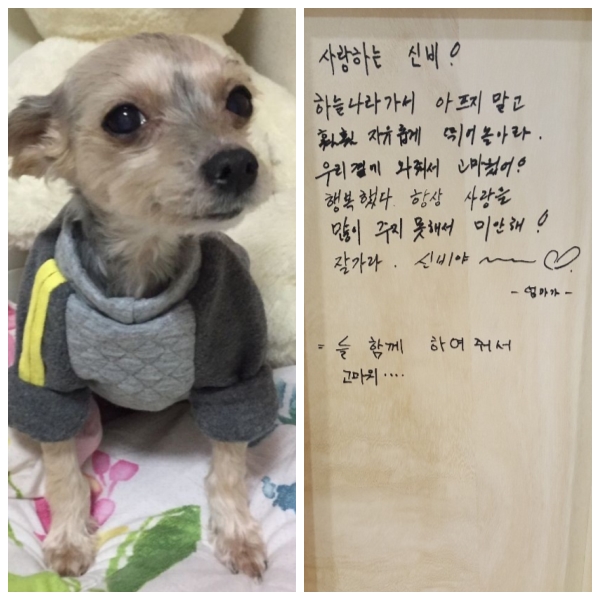 사랑하는 신비!
하늘나라가서 아프지 말고
훨훨 자유롭게 뛰어놀아라.
우리곁에 와줘서 고마웠어!
행복했다. 항상 사랑을
많이 주지 못해서 미안해!
잘가라. 신비야 ~~~♡.
- 엄마가 -
= 늘 함께 하여 줘서
고마워....